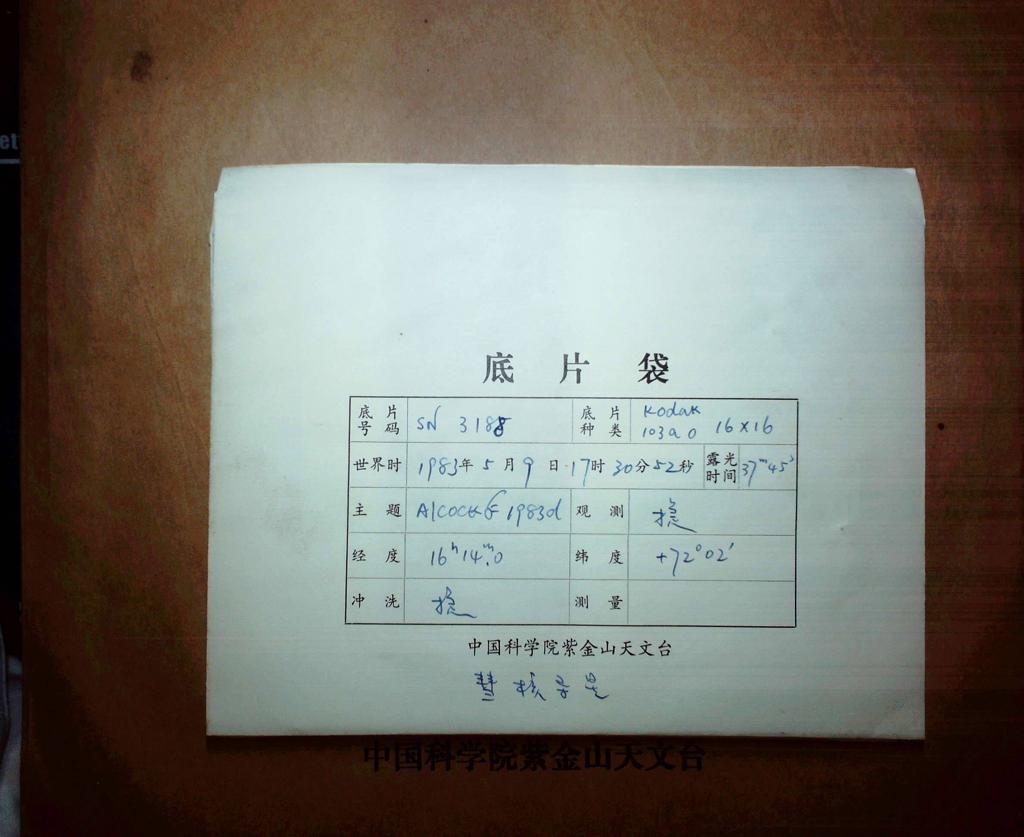 et
底片袋
底片号码 SN 3188 底片种类 Kodak 103aO 16×16
世界时 1983年5月9日17时30分52秒 露光时间 37m45s
主题 Alcock 1983d 观测
经度 16h14m.0 纬度 +72°02′
冲洗 测量
中国科学院紫金山天文台
彗核导星
中国科学院紫金山天文台